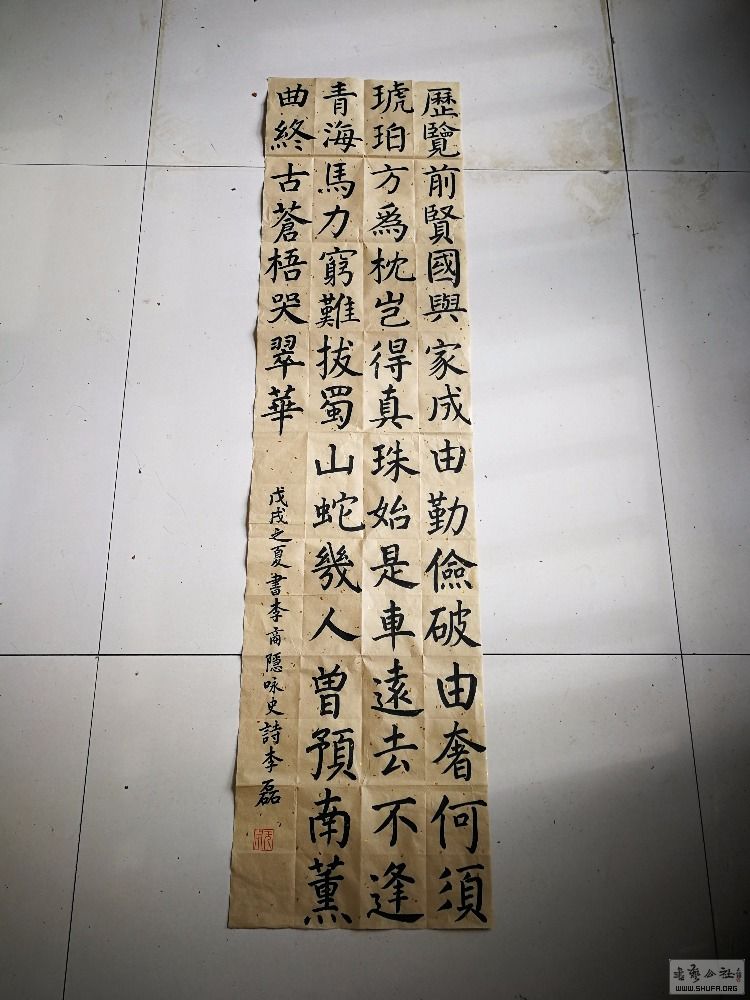 歷覽前賢國與家成由勤儉破由奢何須
琥珀方爲枕岂得真珠始是車遠去不逢
青海馬力窮難拔蜀山蛇幾人曾預南薰
曲終古蒼梧哭翠華
戊戌之夏書李商隱咏史詩李磊
WWW.SHUFA.ORG